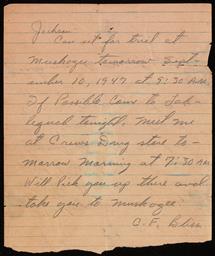 Jackson
Case set for trial at
Muskogee tomorrow Sept-
ember 10, 1947 at 9:30 A.M.
If Possible Come to Tah-
lequah tonight, Meet me
at Crews Drug store to-
morrow Morning at 7:30 AM
Will Pick you up there and
take you to Muskogee.
C. F. Bliss